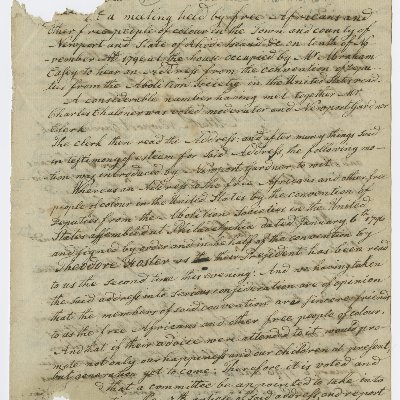 At a meeting held by free Africans and
other free people of colour in the Town and county of
Newport and State of Rhode Island &c on tenth of No
vember AD. 1796 at the house occupied by Mr Abraham
Casey to hear an Address from the convention of Depu
ties from the Abolition Society in the United States read.
A considerable number having met together Mr.
Charles Chaloner was voted moderator and Newport Gardner
Clerk.
The clerk then read the Address, and after many things said
in testimony of esteem for said Address, the following mo-
tion was introduced by Newport Gardner to wit.
Whereas an Address to the free Africans and other free
people of colour in the United States by the convention of
Deputies from the Abolition Societies in the United
States assembled at Philadelphia dated January 6th 1796
and signed by order and in behalf of the convention by
Theodore Foster their President has been read
to us the second time this evening. And we having taken
the said address into serious consideration are of opinion
that the members of said convention are sincere friends
to us the free Africans and other free people of colour.
And that if their advice were attended to it would pro-
mote not only our happiness and our children at present,
but generation yet to come: Therefore it is voted and
that a committee be appointed to take into
said address, and report